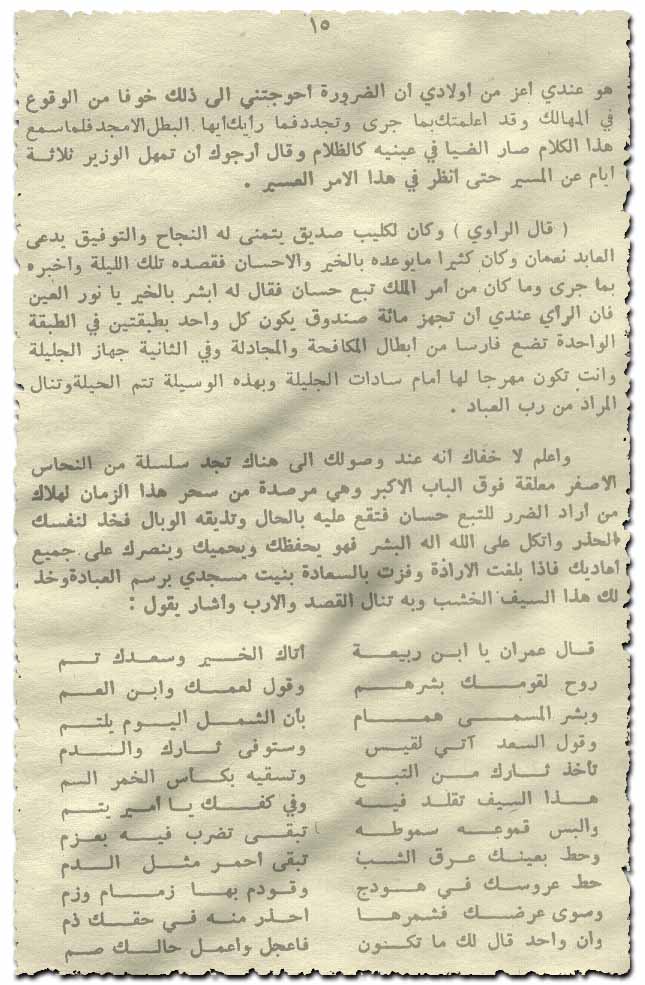 ١٥
هو عندي أعز من أولادي أن الضرورة أحوجتني الى ذلك خوفا من الوقوع
في المهالك وقد اعلمتك بما جرى وتجدد فما رأيك أيها البطل الامجد فلما سمع
هذا الكلام صار الضيا في عينيه كالظلام وقال أرجوك أن تمهل الوزير ثلاثة
أيام عن المسير حتى أنظر في هذا الامر العسير .
( قال الراوي ) وكان لكليب صديق يتمنى له النجاح والتوفيق يدعى
العابد نعمان وكان كثيرا مايوعده بالخير والاحسان فقصده تلك الليلة وأخبره
بما جرى وما كان من أمر الملك تبع حسان فقال له ابشر بالخير يا نور العين
فان الرأي عندي أن تجهز مائة صندوق يكون كل واحد بطبقتين في الطبقة
الواحدة تضع فارسا من أبطال المكافحة والمجادلة وفي الثانية جهاز الجليلة
وانت تكون مهرجا لها أمام سادات الجليلة وبهذه الوسيلة تتم الحيلة وتنال
المراد من رب العباد .
واعلم لا خفاك أنه عند وصولك الى هناك تجد سلسلة من النحاس
الاصفر معلقة فوق الباب الاكبر وهي مرصدة من سحر هذا الزمان لهلاك
من أراد الضرر للتبع حسان فتقع عليه بالحال وتذيقه الوبال فخذ لنفسك
الحذر واتكل على الله اله البشر فهو يحفظك ويحميك وينصرك على جميع
أهاديك فاذا بلغت الارادة وفزت بالسعادة بنيت مسجدي برسم العبادة وخذ
لك هذا السيف الخشب وبه تنال القصد والارب وأشار يقول :
قال عمران يا ابن ربيعة أتاك الخير وسعدك تم
روح لقومك بشرهم وقول لعمك وابن العم
وبشر المسمى همام بأن الشمل اليوم يلتم
وقول السعد آتي لقيس وستوفى ثارك والدم
تأخذ ثارك من التبع وتسقيه بكأس الخمر السم
هذا السيف تقلد فيه وفي كفك يا أمير يتم
والبس قموعه سموطه تبقى تضرب فيه بعزم
وحط بعينك عرق الشب تبقى أحمر مثل الدم
حط عروسك في هودج وقودم بها زمام وزم
وصوى عرضك فشمرها احذر منه في حقك ذم
وان واحد قال لك ما تكون فاعجل واعمل حالك صم